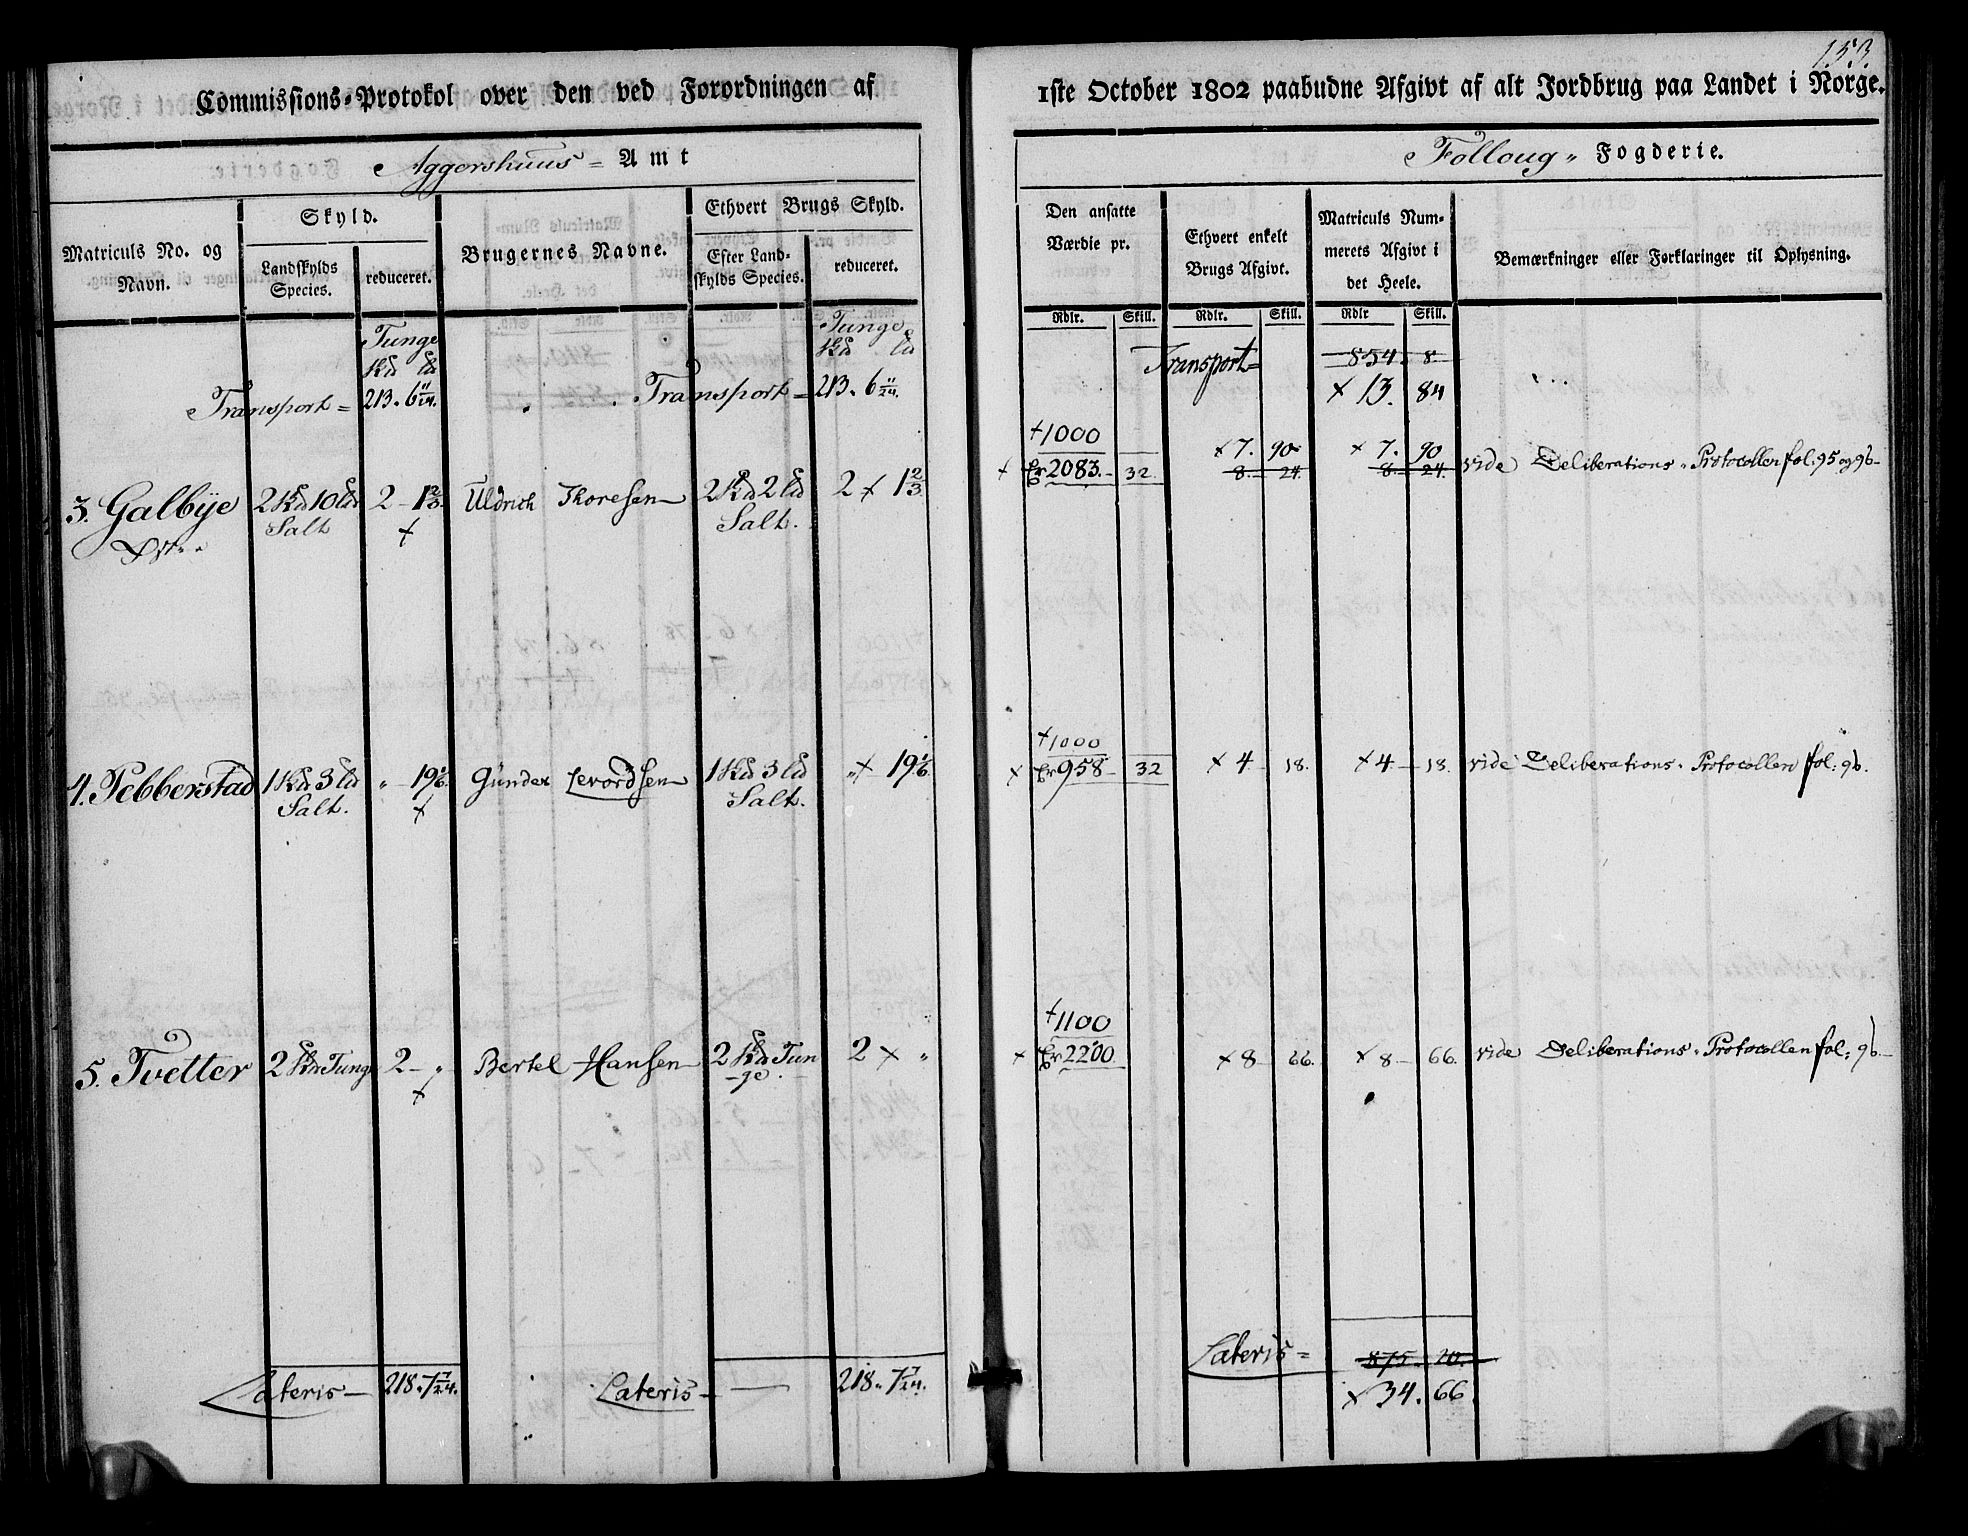 153.
Commissions-Protokol over den ved Forordningen af
1ste October 1802 paabudne Afgivt af alt Jordbrug paa Landet i Norge.
Aggershuus = Amt
Folloug " Fogderie.
Matriculs No. og Navn.
Skyld.
Landskylds Species.
reduceret.
Brugernes Navne.
Ethvert Brugs Skyld.
Efter Landskylds Species.
reduceret.
Den ansatte Værdie pr.
Ethvert enkelt Brugs Afgivt.
Matriculs Nummerets Afgivt i det Heele.
Bemærkninger eller Forklaringer til Oplysning.
Rdlr. Skill. Rdlr. Skill. Rdlr Skill.
Tunge Tunge
Transport = 213. 6 11/24. Transport = 213. 6 11/24.
Transport = 854. 8.
x 13. 84
+1000 x 7. 90 x 7. 90
3. Galbÿe 2 Skd 10 Ld 2 - 1 2/3. Uldrich Thoresen 2 Skd 2 Ld 2 x 1 2/3. x 2083. 32. 8. 24. 8. 24. vide Deliberations. Protocollen fol: 95 og 96-
Salt + Salt.
+1000
4. Pebberstad 1 Skd 3 Ld " 19 1/6. Gunder Levordsen 1 Skd 3 Ld " x 19 1/6. x 958 - 32 x 4 - 18. x 4 - 18. vide Deliberations. Protocollen fol: 96.
Salt. + Salt.
+1100
5. Tvetter 2 Skd Tunge 2 - " Bertel Hansen 2 Skd Tun 2 x " x 2200. x 8 - 66. x 8 - 66. vide Deliberations. Protocollen fol: 96-
+ ge.
Lateris - 218. 7 7/24. Lateris - 218. 7 7/24. Lateris = 875. 20.
x 34. 66.